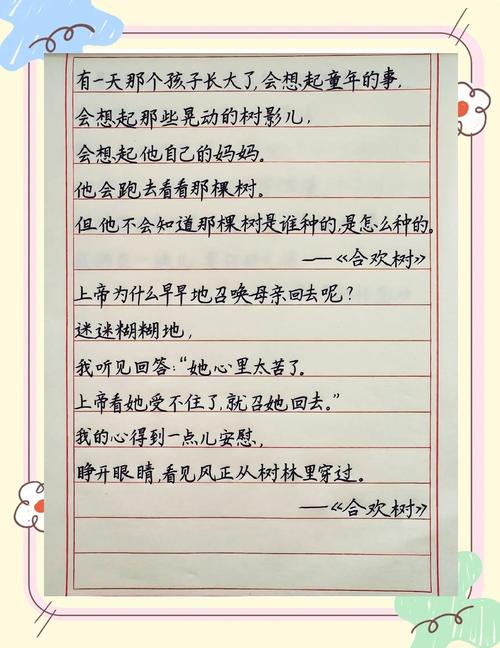 有一天那个孩子长大了,会想起童年的事,
会想起那些晃动的树影儿,
会想起他自己的妈妈。
他会跑去看看那棵树。
但他不会知道那棵树是谁种的,是怎么种的。
——《合欢树》
上帝为什么早早地召唤母亲回去呢?
迷迷糊糊地,
我听见回答:“她心里太苦了。
上帝看她,受不住了,就召她回去。”
我的心得到一点儿安慰,
睁开眼睛,看见风正从树林里穿过。
——《合欢树》